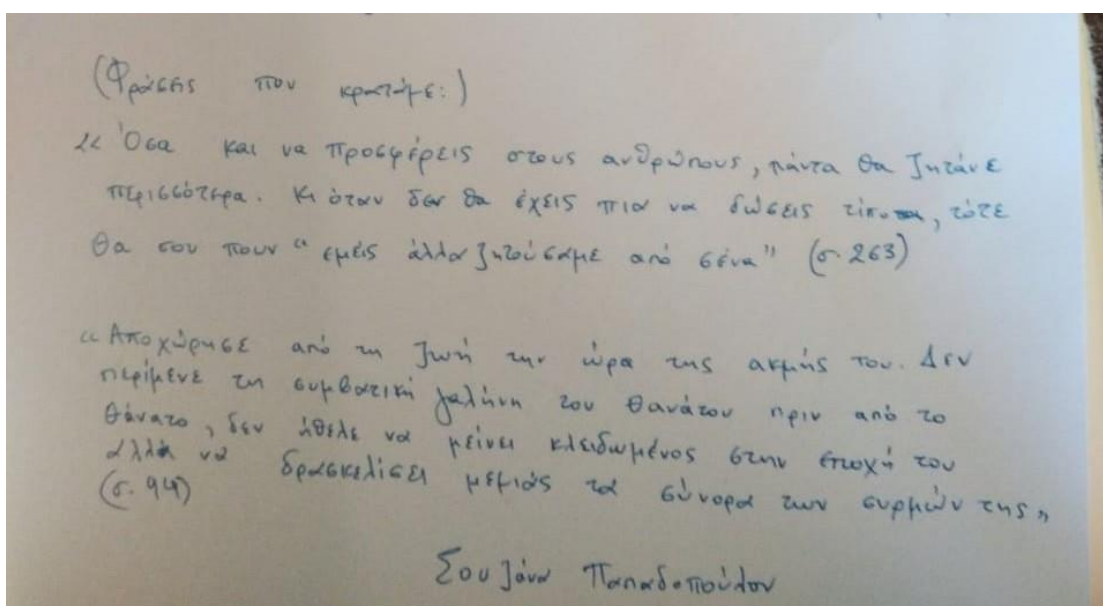 (Φράσεις που κρατάμε:)
"Όσα και να προσφέρεις στους ανθρώπους, πάντα θα ζητάνε
περισσότερα. Κι όταν δεν θα έχεις πια να δώσεις τίποτα, τότε
θα σου πουν "εμείς άλλα ζητούσαμε από σένα" (σ. 263)
"Αποχώρησε από τη ζωή την ώρα της ακμής του. Δεν
περίμενε τη συμβατική γαλήνη του θανάτου πριν από το
θάνατο, δεν ήθελε να μείνει κλειδωμένος στην εποχή του
αλλά να δρασκελίσει μεμιάς τα σύνορα των συρμών της"
(σ. 94)
Σουζάνα Παπαδοπούλου